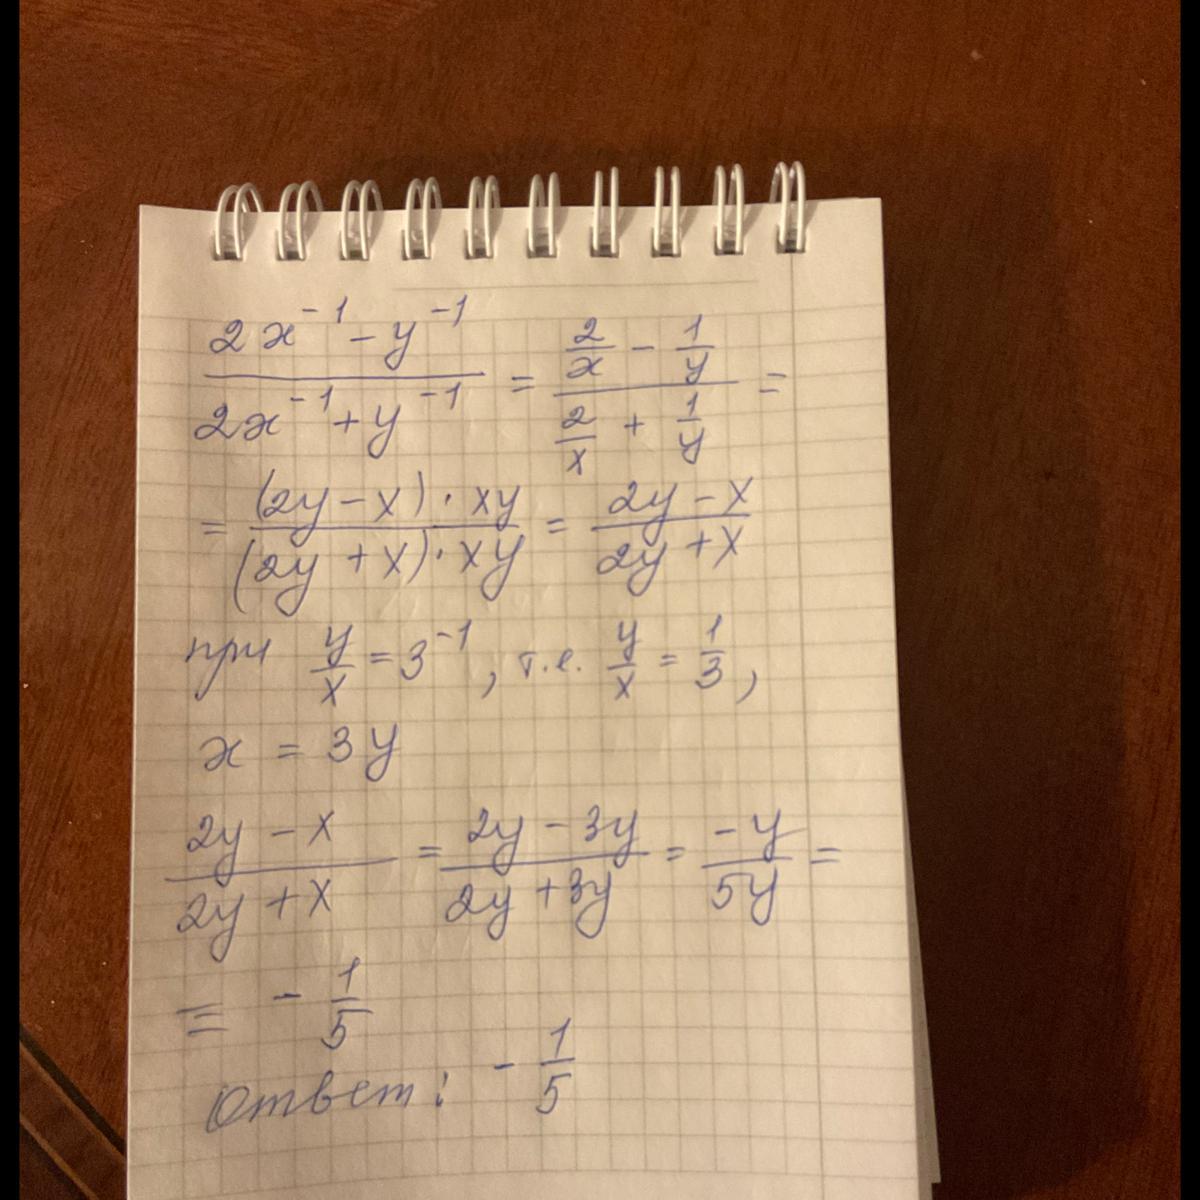 (2x⁻¹ - y⁻¹)/(2x⁻¹ + y⁻¹) = (2/x - 1/y)/(2/x + 1/y) =
= ((2y - x) · xy)/((2y + x) · xy) = (2y - x)/(2y + x)
при y/x = 3⁻¹, т.е. y/x = 1/3,
x = 3y
(2y - x)/(2y + x) = (2y - 3y)/(2y + 3y) = -y/5y =
= - 1/5
Ответ: - 1/5